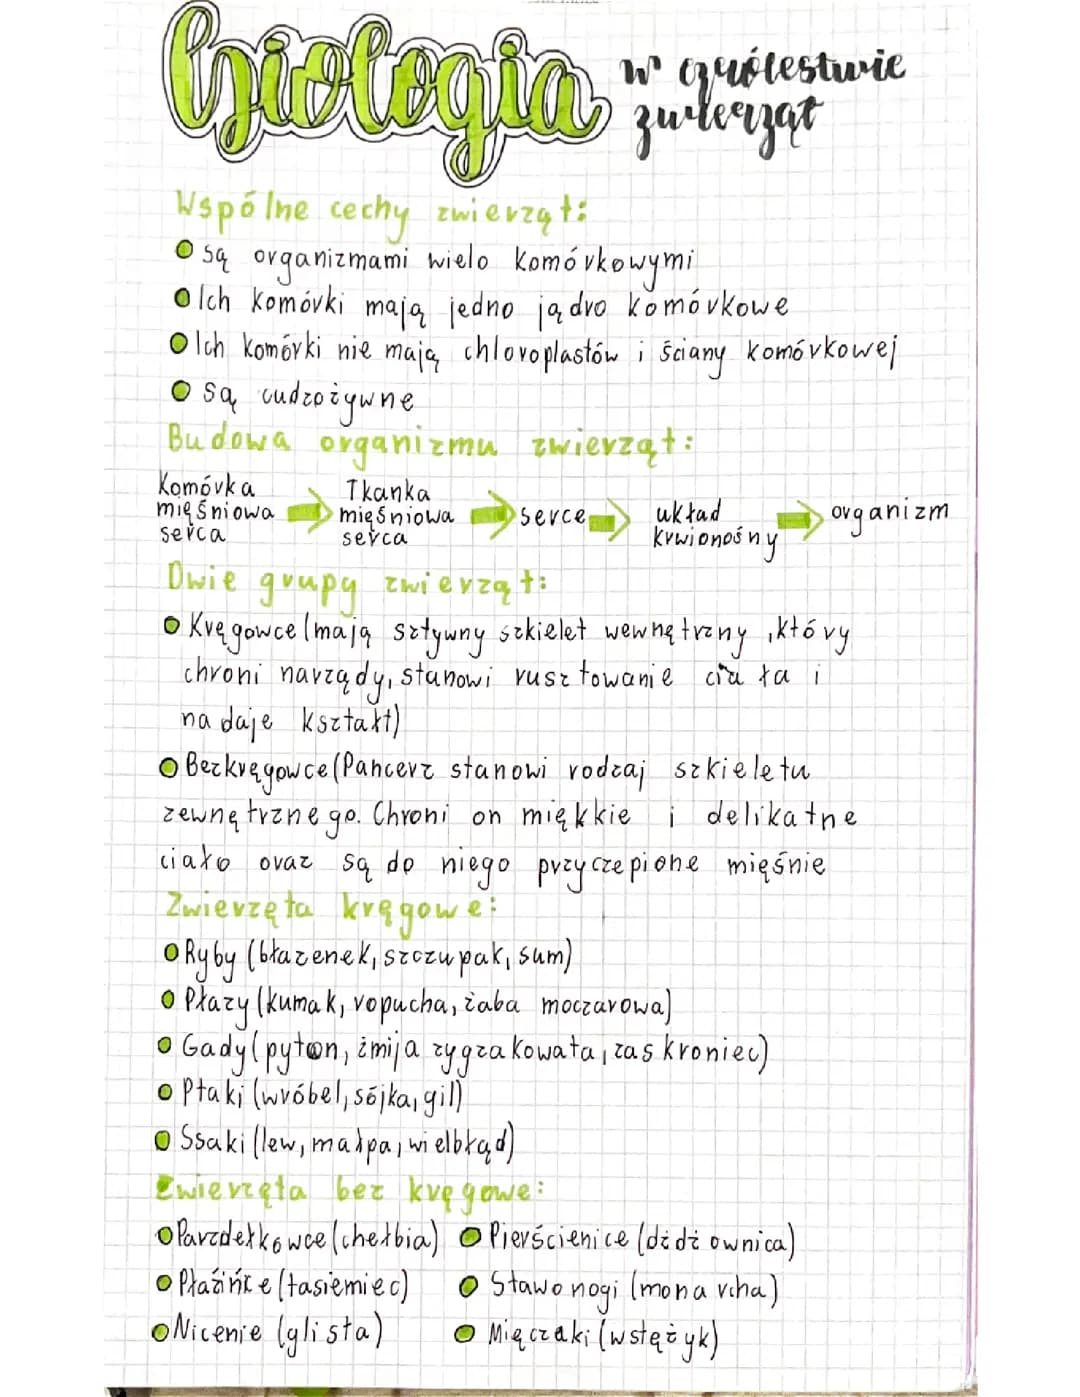 biologia w czrólestwie
zwierząt
Wspólne cechy zwierząt:
są organizmami wielo komórkowymi
Ich komórki mają jedno jądro komórkowe
Ich komórki nie mają chloroplastów i ściany komórkowej
są cudzożywne
Budowa organizmu zwierząt:
Komórka mięśniowa serca
Tkanka mięśniowa serca
serce
układ krwionośny
organizm
Dwie grupy zwierząt:
Kręgowce (mają sztywny szkielet wewnętrzny, który
chroni narządy, stanowi rusztowanie ciała i
nadaje kształt)
Bezkręgowce (Pancerz stanowi rodzaj szkieletu
zewnętrznego. Chroni on miękkie i delikatne
ciało oraz są do niego przyczepione mięśnie
Zwierzęta kręgowe:
Ryby (błazenek, szczupak, sum)
Płazy (kumak, ropucha, żaba moczarowa)
Gady (pyton, żmija zygzakowata, zaskroniec)
Ptaki (wróbel, sójka, gil)
Ssaki (lew, małpa, wielbłąd)
Zwierzęta bez kręgowe:
Parzdełkowce (chełbia)
Płazińce (tasiemiec)
Nicenie (glista)
Pierścienice (dżdżownica)
Stawonogi (mona rcha)
Mięczaki (wstężyk)